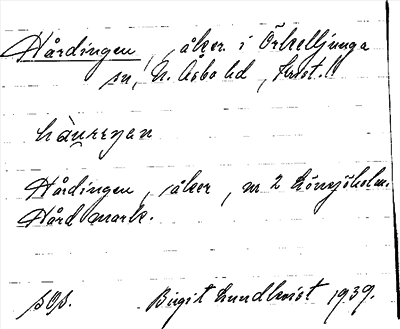 Hårdingen, åker i Örkelljunga
sn, N. Åsbo hd, Krist.
Hårdingen, åker, nr 2 Lönsjöholm.
Hård mark.
sgs. Birgit Lundkvist 1939.